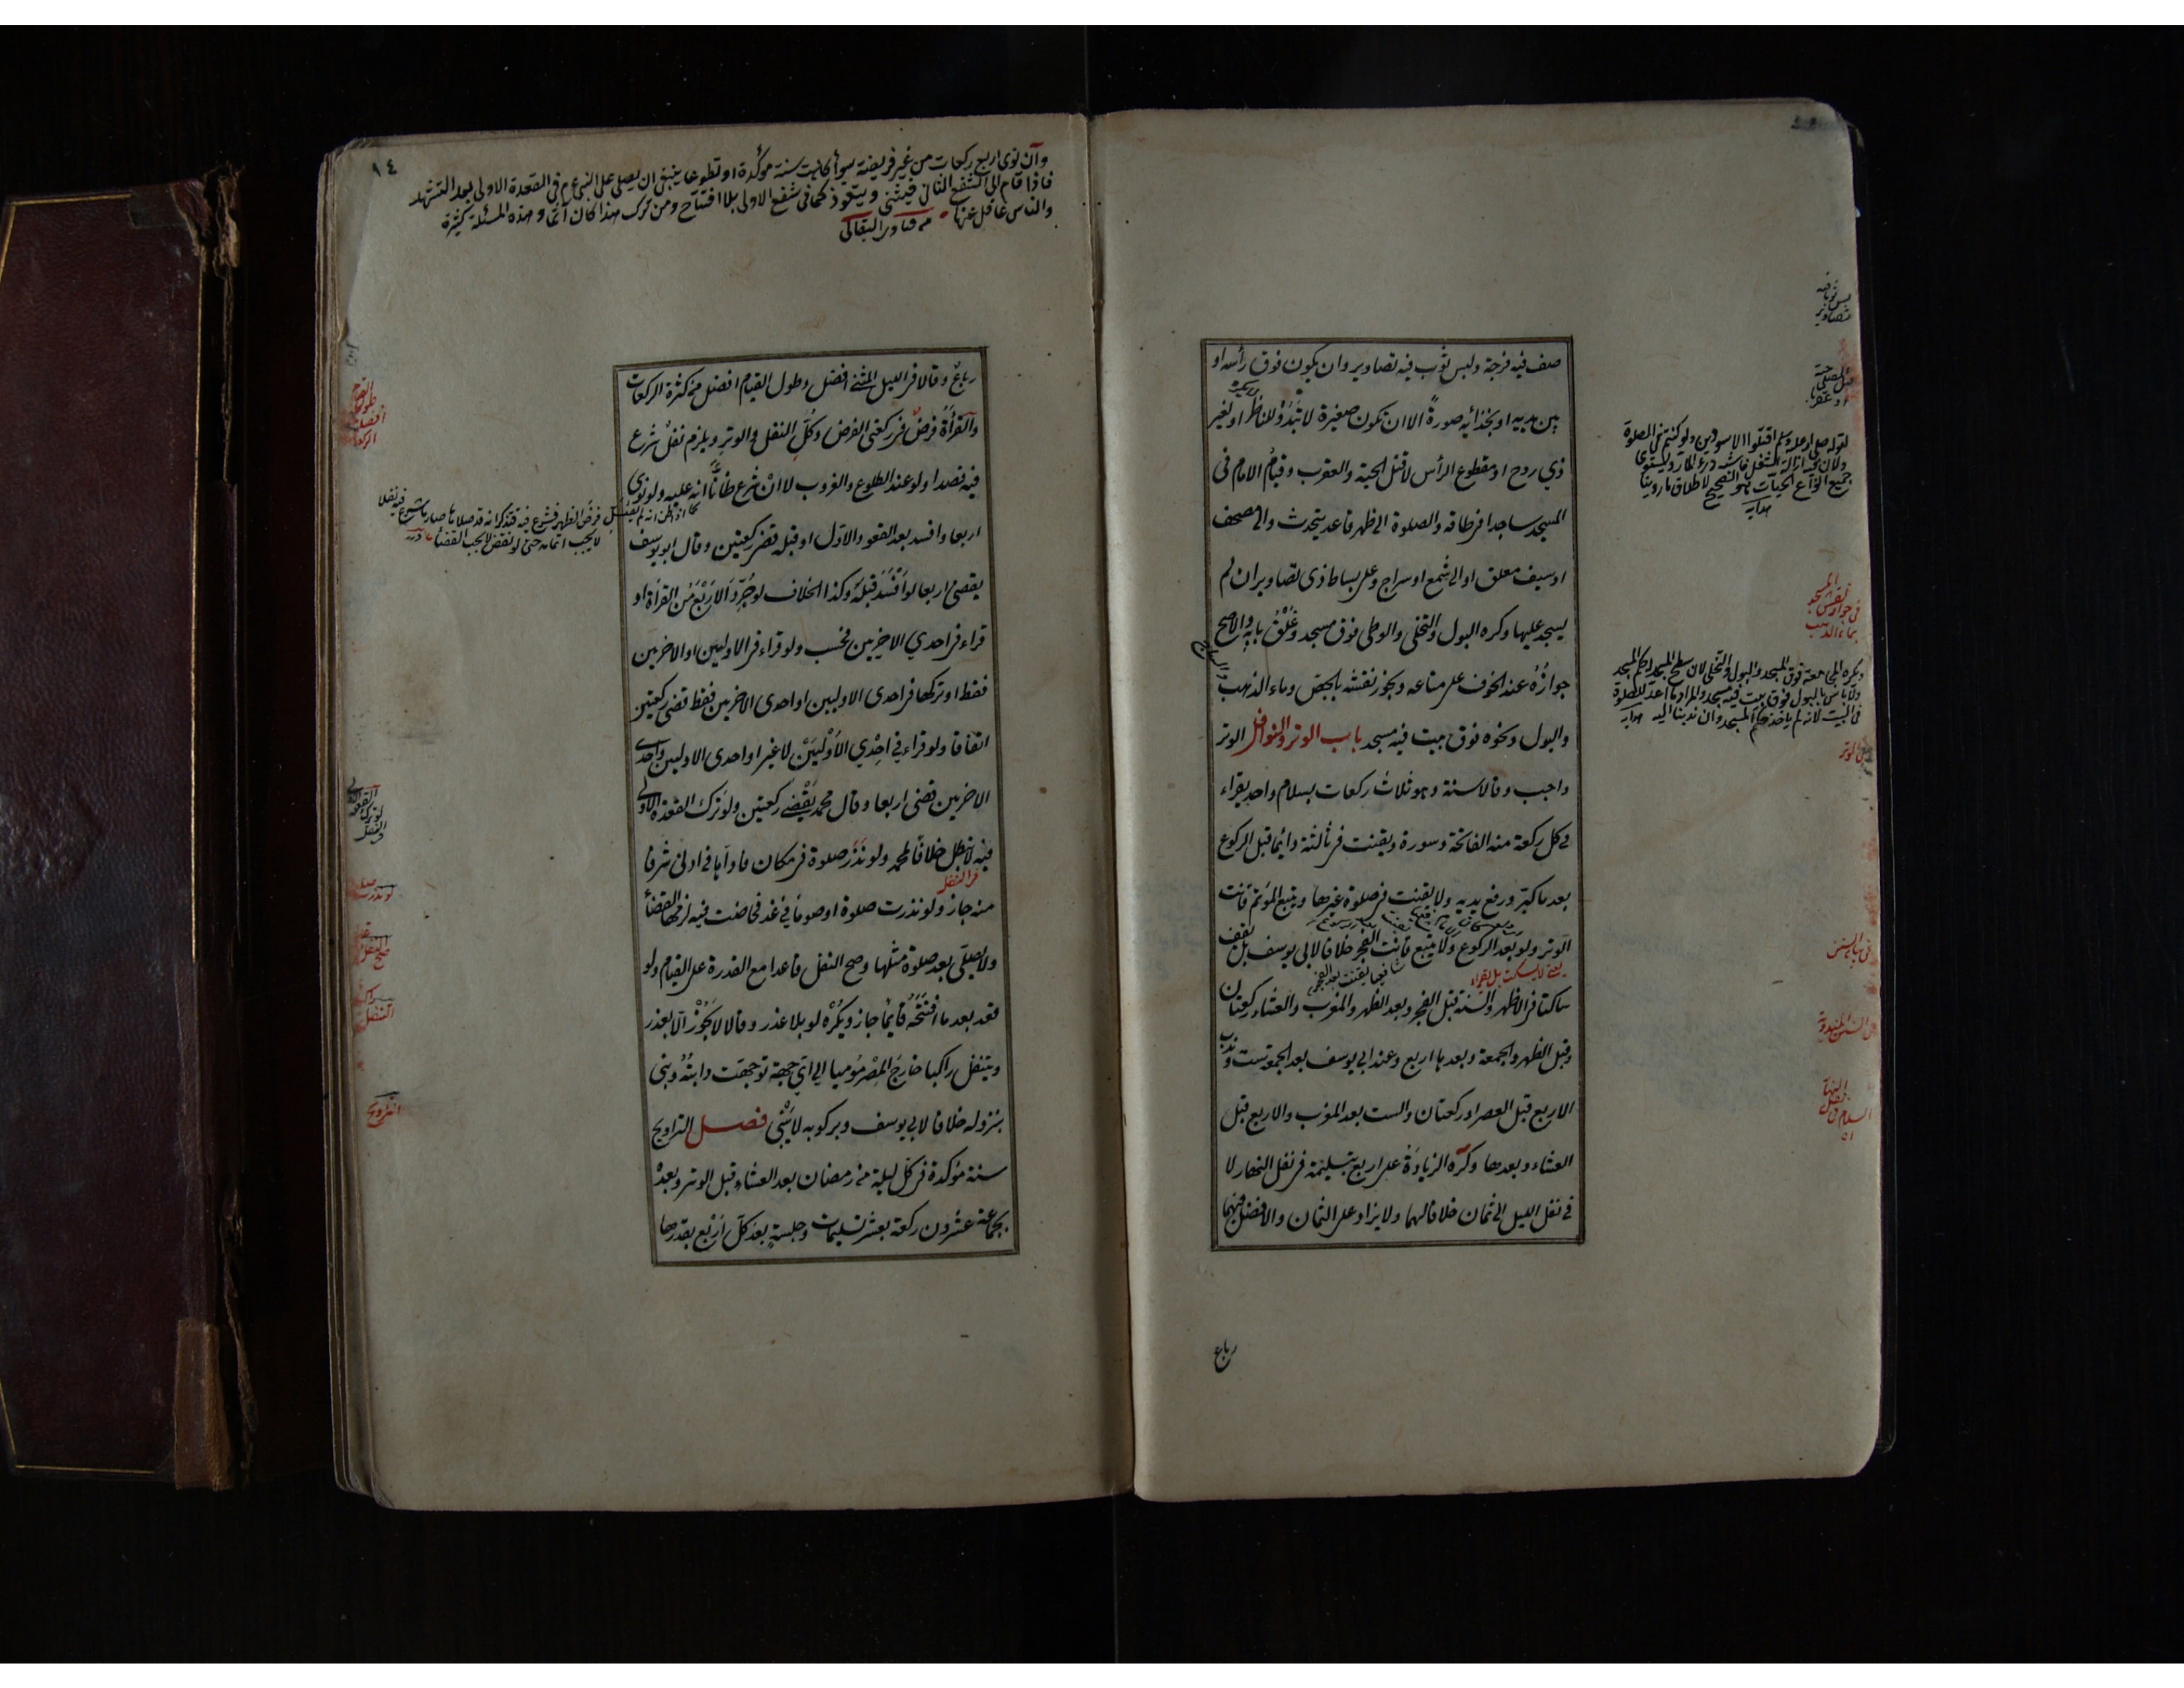 صف فيه فرجة ولبس ثوب فيه تصاوير وان يكون فوق رأسه او
بين يديه او بحذائه صورةً الا ان تكون صغيرة لا تبدو للناظر او لغير
ذي روح او مقطوع الرأس لا قتل الحية والعقرب وقيام الامام في
المسجد ساجدا في طاقه والصلوة الى ظهر قاعد يتحدث والى مصحف
او سيف معلق او الى شمع او سراج وعلى بساط ذى تصاوير ان لم
يسجد عليها وكره البول والتخلى والوطى فوق مسجد وغلق بابه والاصح
جوازه عند الخوف على متاعه ويجوز نقشه بالجص وماء الذهب
والبول ونحوه فوق بيت فيه مسجد باب الوتر والنوافل الوتر
واجب وقالا سنة وهو ثلاث ركعات بسلام واحد يقراء
في كل ركعة منه الفاتحة وسورة ويقنت في ثالثته دائما قبل الركوع
بعد ما كبر ورفع يديه ولا يقنت في صلوة غيرها ويتبع المؤتم قانت
الوتر ولو بعد الركوع ولا يتبع قانت الفجر خلافا لابى يوسف بل يقف
يعنى لا يسكت بل يقراء
ساكتا في الاظهر والسنة قبل الفجر وبعد الظهر والمغرب والعشاء ركعتان
وقبل الظهر والجمعة وبعدها اربع وعند ابي يوسف بعد الجمعة ست وندب
الاربع قبل العصر او ركعتان والست بعد المغرب والاربع قبل
العشاء وبعدها وكره الزيادة على اربع بتسليمة في نفل النهار لا
في نفل الليل الى ثمان خلافا لهما ولا يزاد على الثمان والافضل فيهما
رباع
لبس ثوبا فيه
تصاوير
لقوله صلى الله عليه وسلم اقتلوا الاسودين ولو كنتم في الصلوة
ولان فيه ازالة الشغل فاشبه درء المار ويستوى
جميع انواع الحيات هو الصحيح لاطلاق ما روينا
هدايه
في جواز نقش المسجد
بماء الذهب
ويكره المجامعة فوق المسجد والبول والتخلى لان سطح المسجد له حكم المسجد
ولا بأس بالبول فوق بيت فيه مسجد والمراد ما اعد للصلوة
في البيت لانه لم يأخذ حكم المسجد وان ندبنا اليه هدايه
في الوتر
في باب السنن
في السنن المندوبة
١٤
وان نوى اربع ركعات من غير فريضة سواء كانت سنة مؤكدة او تطوعا ينبغى ان يصلى على النبى عم في القعدة الاولى بعد التشهد
فاذا قام الى الشفع الثانى فيثنى ويتعوذ كما في شفع الاولى بلا افتتاح ومن ترك هذا كان آثما وهذه المسئلة كثيرة
والناس غافل عنها من فتاوى البقالى
رباعٌ وقالا في الليل المثنى افضل وطول القيام افضل من كثرة الركعات
والقرأة فرض في ركعتى الفرض وكل النفل والوتر ويلزم نفل شرع
فيه قصدا ولو عند الطلوع والغروب لا ان شرع ظانا انه عليه ولو نوى
اربعا وافسد بعد القعود الاول او قبله قضى ركعتين وقال ابو يوسف
يقضى اربعا لو افسد قبله وكذا الخلاف لو جرد الاربع من القرأة او
قراء في احدي الاخريين فحسب ولو قراء في الاوليين او الاخريين
فقط او تركها في احدى الاوليين او احدى الاخريين فقط قضى ركعتين
اتفاقا ولو قراء في احدي الاوليين لا غير او احدى الاوليين واحدى
الاخريين قضى اربعا وقال محمد يقضى ركعتين ولو ترك القعدة الاولى
فيه لا تبطل خلافا لمحمد ولو نذر صلوة في مكان فاداها في ادنى شرفا
منه جاز ولو نذرت صلوة او صوما في غد فحاضت فيه لزمها القضأ
ولا يصلى بعد صلوة مثلها وصح النفل قاعدا مع القدرة على القيام ولو
قعد بعد ما افتتحه قائما جاز ويكره لو بلا عذر وقالا لا يجوز الا بعذر
ويتنفل راكبا خارج المصر موميا الى اي جهة توجهت دابته وبنى
بنزوله خلافا لابي يوسف وبركوبه لا يبنى فصل التراويح
سنة مؤكدة في كل ليلة من رمضان بعد العشاء قبل الوتر وبعده
بجماعة عشرون ركعة بعشر تسليمات وجلسة بعد كل اربع بقدرها
كما اذا ظن انه لم يصل فرض الظهر فشرع فيه فتذكر انه قد صلاها صار ما شرع فيه نفلا
لا يجب اتمامه حتى لو نقض لا يجب القضأ درر
في النفل
التراويح